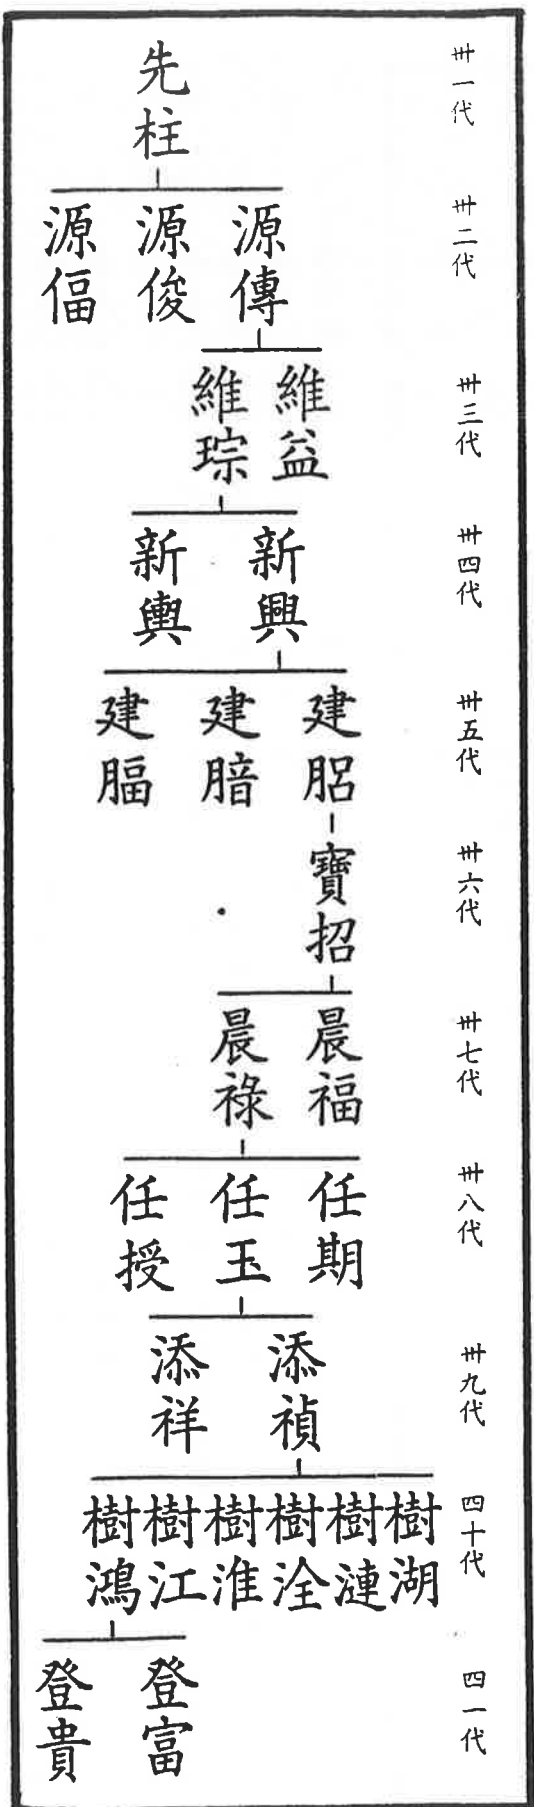 卅一代
先柱
卅二代
源傳
源俊
源偪
卅三代
維益
維琮
卅四代
新興
新輿
卅五代
建䏽
建腤
建腷
卅六代
寶招
卅七代
晨福
晨祿
卅八代
任期
任玉
任授
卅九代
添禎
添祥
四十代
樹湖
樹漣
樹洤
樹淮
樹江
樹鴻
四一代
登富
登貴